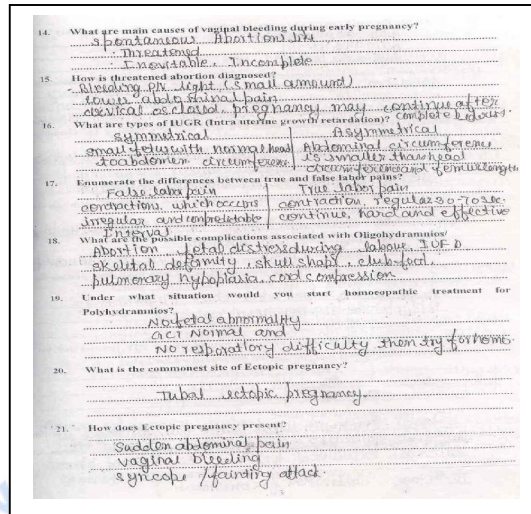 14. What are main causes of vaginal bleeding during early pregnancy?
Spontaneous Abortions like
Threatened
Inevitable, Incomplete
15. How is threatened abortion diagnosed?
- Bleeding PV light (small amount)
lower abdominal pain
cervical os closed, pregnancy may continue after
complete bed rest.
16. What are types of IUGR (Intra uterine growth retardation)?
symmetrical Asymmetrical
small fetus with normal head Abdominal circumference
to abdomen circumference is smaller than head
circumference and femur length
17. Enumerate the differences between true and false labor pains?
False labor pain True labor pain
contractions, which occurs contraction, regular 30-70 sec.
irregular and continue, hard and effective
Interval
18. What are the possible complications associated with Oligohydramnios/
Abortion fetal distress during labour, IUFD
skeletal deformity, skull shape, club-foot,
pulmonary hypoplasia, cord compression
19. Under what situation would you start homoeopathic treatment for
Polyhydramnios?
No fetal abnormality
GCT Normal and
No resporatlory difficulty then try for homeo.
20. What is the commonest site of Ectopic pregnancy?
Tubal ectopic pregnancy.
21. How does Ectopic pregnancy present?
sudden abdominal pain
vaginal bleeding
syncope / fainting attack.